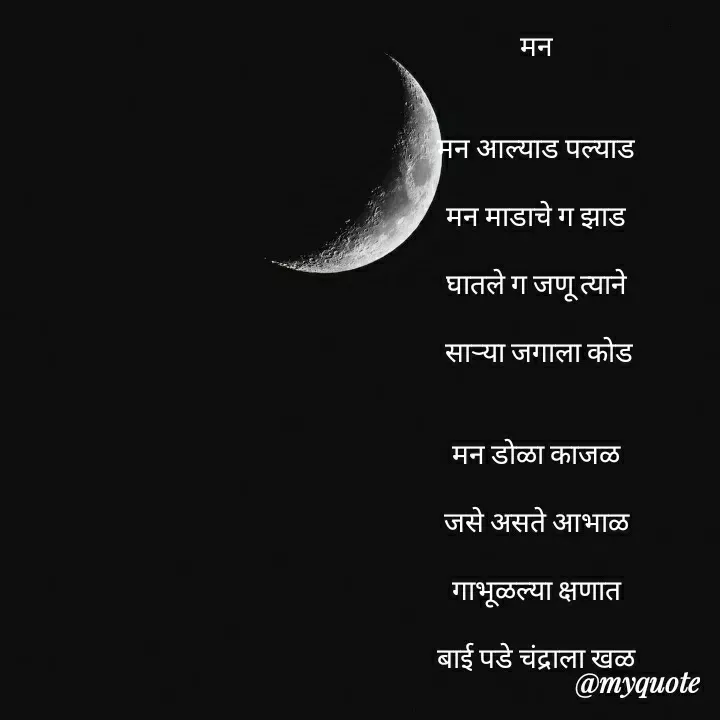 मन
मन आल्याड पल्याड
मन माडाचे ग झाड
घातले ग जणू त्याने
साऱ्या जगाला कोड
मन डोळा काजळ
जसे असते आभाळ
गाभूळल्या क्षणात
बाई पडे चंद्राला खळ
@myquote